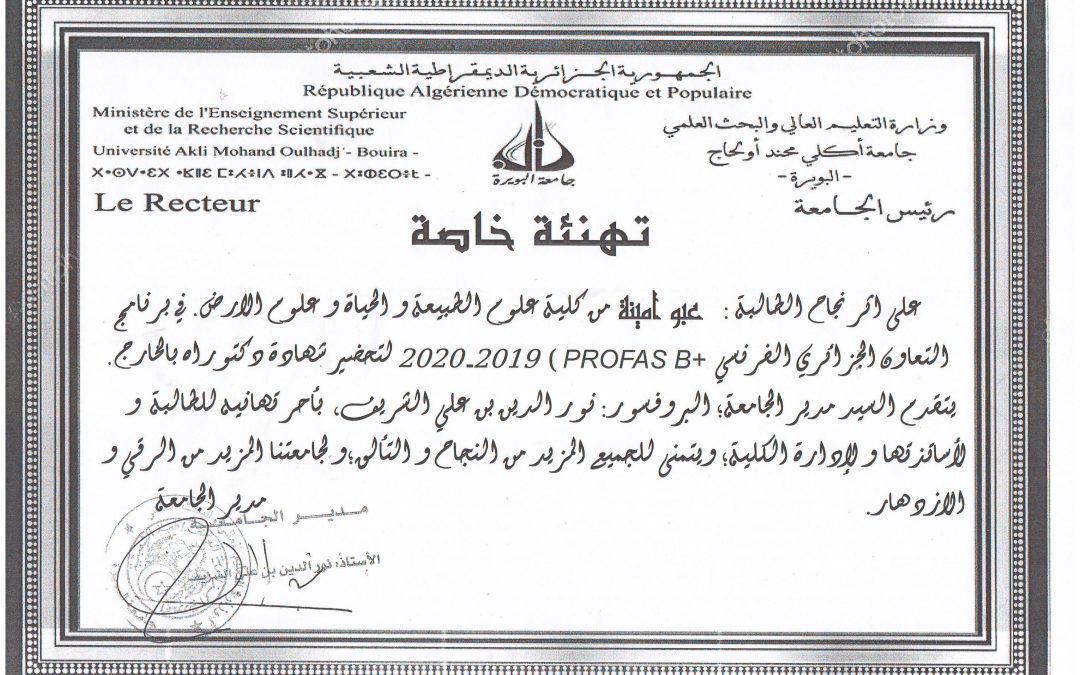 الجمهورية الجزائرية الديمقراطية الشعبية
République Algérienne Démocratique et Populaire
Ministère de l'Enseignement Supérieur
et de la Recherche Scientifique
Université Akli Mohand Oulhadj - Bouira -
ⵜⴰⵙⴷⴰⵡⵉⵜ ⴰⴽⵍⵉ ⵎⵓⵃⴻⵏⴷ ⵓⵍⵃⴰⴵ - ⵜⵓⴱⵉⵔⴻⵜ -
Le Recteur
وزارة التعليم العالي والبحث العلمي
جامعة أكلي محند أولحاج
- البويرة -
رئيس الجامعة
جامعة البويرة
تهنئة خاصة
على اثر نجاح الطالبة : عبو أمينة من كلية علوم الطبيعة و الحياة و علوم الارض. في برنامج
التعاون الجزائري الفرنسي PROFAS B+ ) 2019ـ2020 لتحضير شهادة دكتوراه بالخارج.
يتقدم السيد مدير الجامعة؛ البروفسور: نور الدين بن علي الشريف، بأحر تهانيه للطالبة و
لأساتذتها و لإدارة الكلية؛ ويتمنى للجميع المزيد من النجاح و التألق؛ ولجامعتنا المزيد من الرقي و
الازدهار.
مدير الجامعة
مدير الجامعة
الأستاذ: نور الدين بن علي الشريف